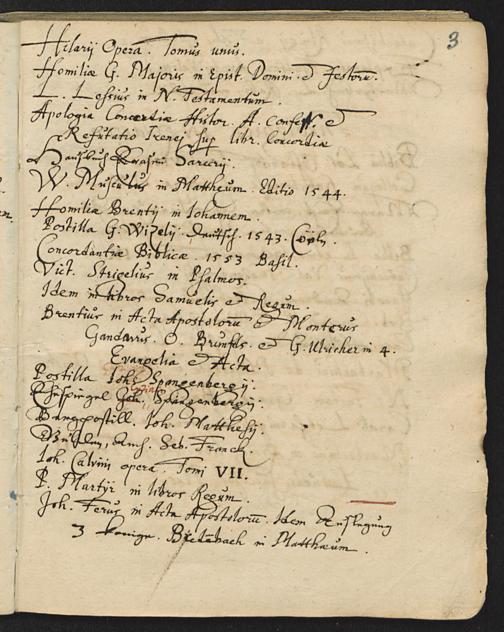 3
Hilarii Opera. Tomus unus.
Homiliæ G. Majoris in Epist. Domini. et Festorū.
L. Lossius in N. Testamentum.
Apologia Concordiæ Histor. A. Confess. et
Refutatio Irenei sup libr. Concordiæ
Hausbuch Erasmi Sarcerij.
W. Musculus in Mattheum. Editio 1544.
Homiliæ Brentij in Iohannem.
Postilla G. Wizelij. deutsch. 1543. Cöpln.
Concordantiæ Biblicæ. 1553 Basil.
Vict. Strigelius in Psalmos.
Idem in libros Samuelis et Regum.
Brentius in Acta Apostolorū et Monterus
Gandavus. O. Brunfels et G. Ulricher in 4.
Evangelia et Acta.
Postilla Ioh. Spangenbergij.
Ehspiegel Spangenbergij.
Bergpostill. Ioh. Matthesij.
Seb. Franck.
Ioh. Calvini opera. Tomi VII.
P. Martyr in libros Regum.
Joh. Ferus in Acta Apostolorū. Idem Auslegung
3 konige. Bretbach in Matthæum.